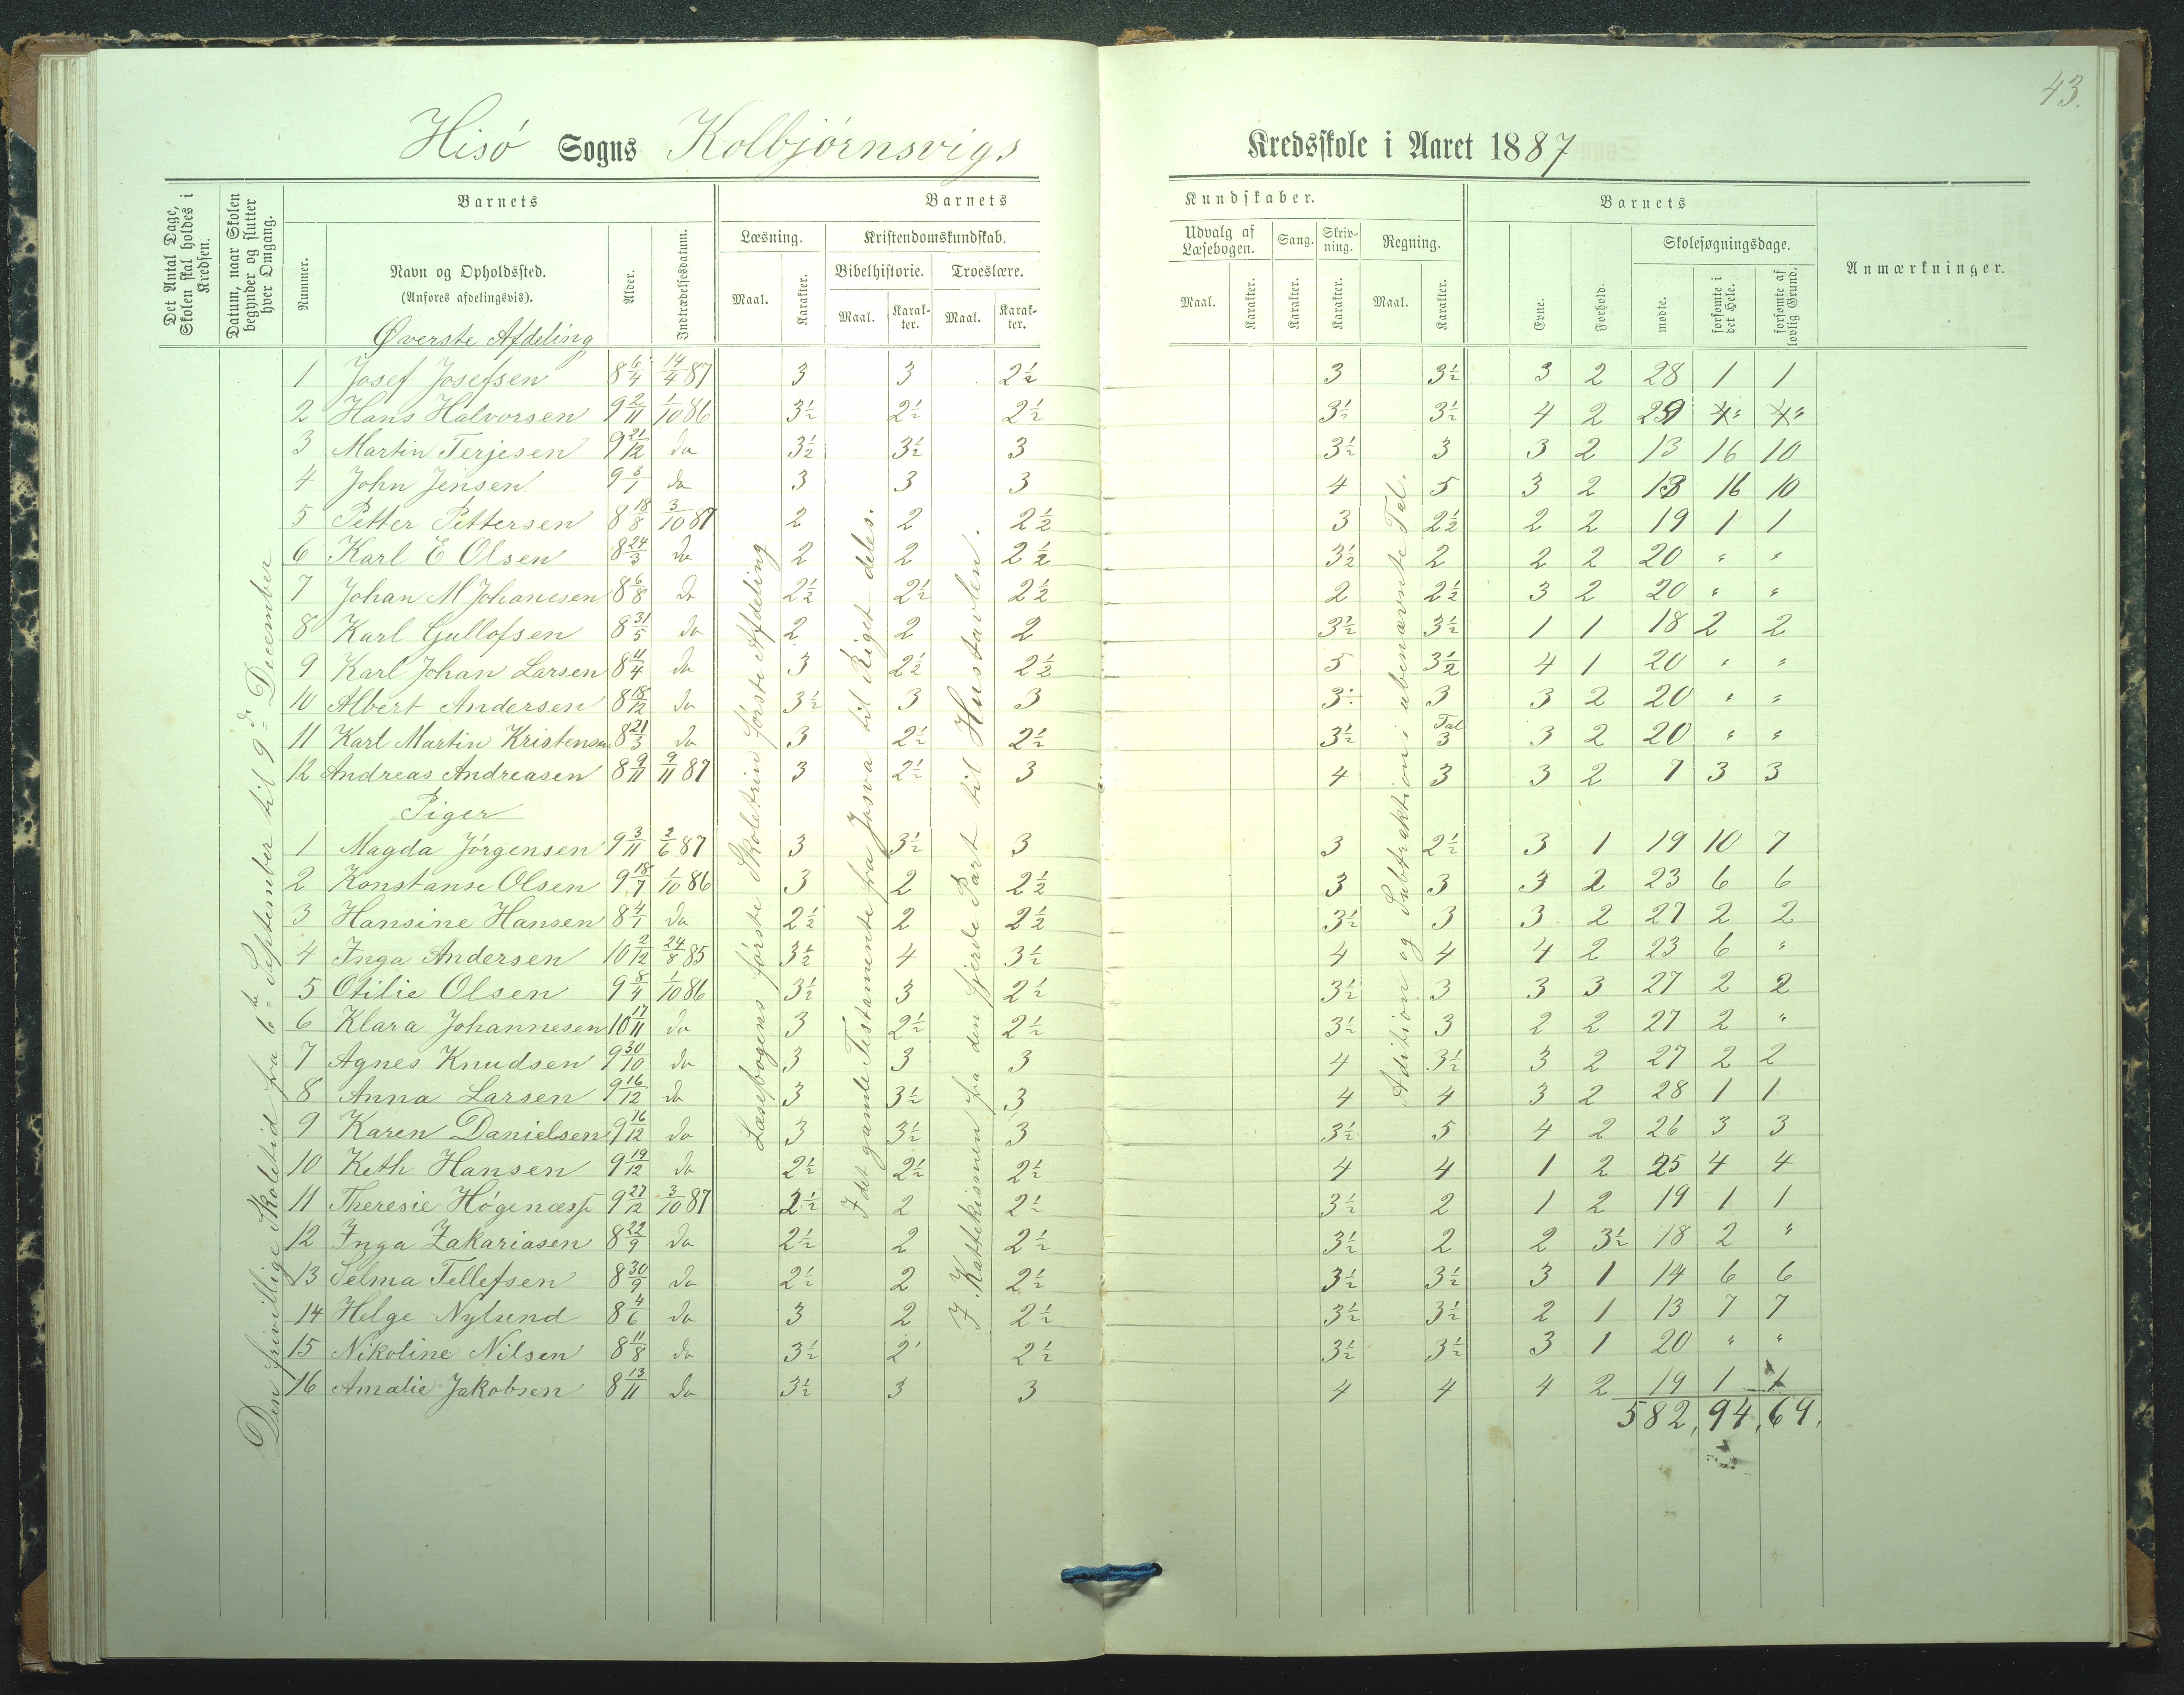 43.
Hisö Sogns Kolbjörnsvigs Kredsskole i Aaret 1887
Det Antal Dage, Skolen skal holdes i Kredsen.
Datum, naar Skolen begynder og slutter hver Omgang.
Barnets
Nummer.
Navn og Opholdssted.
(Anføres afdelingsvis).
Alder.
Indtrædelsesdatum.
Barnets Kundskaber.
Læsning.
Maal.
Karakter.
Kristendomskundskab.
Bibelhistorie.
Maal.
Karakter.
Troeslære.
Maal.
Karakter.
Udvalg af Læsebogen.
Maal.
Karakter.
Sang.
Karakter.
Skrivning.
Karakter.
Regning.
Maal.
Karakter.
Barnets
Evne.
Forhold.
Skolesøgningsdage.
mødte.
forsømte i det Hele.
forsømte af lovlig Grund.
Anmærkninger.
Øverste Afdeling
Den frivillige Skoletid fra 6te September til 9de December
Læsebogens første Skoletrin første Afdeling
I det gamle Testamente fra Josva til Riget deles.
I Kattekismen fra den fjerde Part til Hustavlen.
Adition og Subtraktion i ubenævnte Tal.
1 Josef Josefsen 8 6/4 14/4 87 3 3 2½ 3 3½ 3 2 28 1 1
2 Hans Halvorsen 9 2/11 1/10 86 3½ 2½ 2½ 3½ 3½ 4 2 29 " "
3 Martin Terjesen 9 21/12 do 3½ 3½ 3 3½ 3 3 2 13 16 10
4 John Jensen 9 3/1 do 3 3 3 4 5 3 2 13 16 10
5 Petter Pettersen 8 18/8 3/10 87 2 2 2½ 3 2½ 2 2 19 1 1
6 Karl E Olsen 8 24/3 do 2 2 2½ 3½ 2 2 2 20 " "
7 Johan M Johanesen 8 6/8 do 2½ 2½ 2½ 2 2½ 3 2 20 " "
8 Karl Gullofsen 8 31/5 do 2 2 2 3½ 3½ 1 1 18 2 2
9 Karl Johan Larsen 8 11/4 do 3 2½ 2½ 5 3½ 4 1 20 " "
10 Albert Andersen 8 18/12 do 3½ 3 3 3½ 3 3 2 20 " "
11 Karl Martin Kristensen 8 21/3 do 3 2½ 2½ 3½ Tal 3 3 2 20 " "
12 Andreas Andreasen 8 9/11 9/11 87 3 2½ 3 4 3 3 2 7 3 3
Piger
1 Magda Jörgensen 9 3/11 2/6 87 3 3½ 3 3 2½ 3 1 19 10 7
2 Konstanse Olsen 9 18/7 1/10 86 3 2 2½ 3 3 3 2 23 6 6
3 Hansine Hansen 8 4/1 do 2½ 2 2½ 3½ 3 3 2 27 2 2
4 Inga Andersen 10 2/12 24/8 85 3½ 4 3½ 4 4 4 2 23 6 "
5 Otilie Olsen 9 8/4 1/10 86 3½ 3 2½ 3½ 3 3 3 27 2 2
6 Klara Johannesen 10 17/11 do 3 2½ 2½ 3½ 3 2 2 27 2 "
7 Agnes Knudsen 9 30/10 do 3 3 3 4 3½ 3 2 27 2 2
8 Anna Larsen 9 16/12 do 3 3½ 3 4 4 3 2 28 1 1
9 Karen Danielsen 9 16/12 do 3 3½ 3 3½ 5 4 2 26 3 3
10 Keth Hansen 9 19/12 do 2½ 2½ 2½ 4 4 1 2 25 4 4
11 Theresie 9 27/12 3/10 87 2½ 2 2½ 3½ 2 1 2 19 1 1
12 Inga Zakariasen 8 22/9 do 2½ 2 2½ 3½ 2 2 3½ 18 2 "
13 Selma Tellefsen 8 30/9 do 2½ 2 2½ 3½ 3½ 3 1 14 6 6
14 Helge Nylund 8 4/6 do 3 2 2½ 3½ 3½ 2 1 13 7 7
15 Nikoline Nilsen 8 11/8 do 3½ 2 2½ 3½ 3½ 3 1 20 " "
16 Amalie Jakobsen 8 13/11 do 3½ 3 3 4 4 4 2 19 1 1
582, 94, 69,